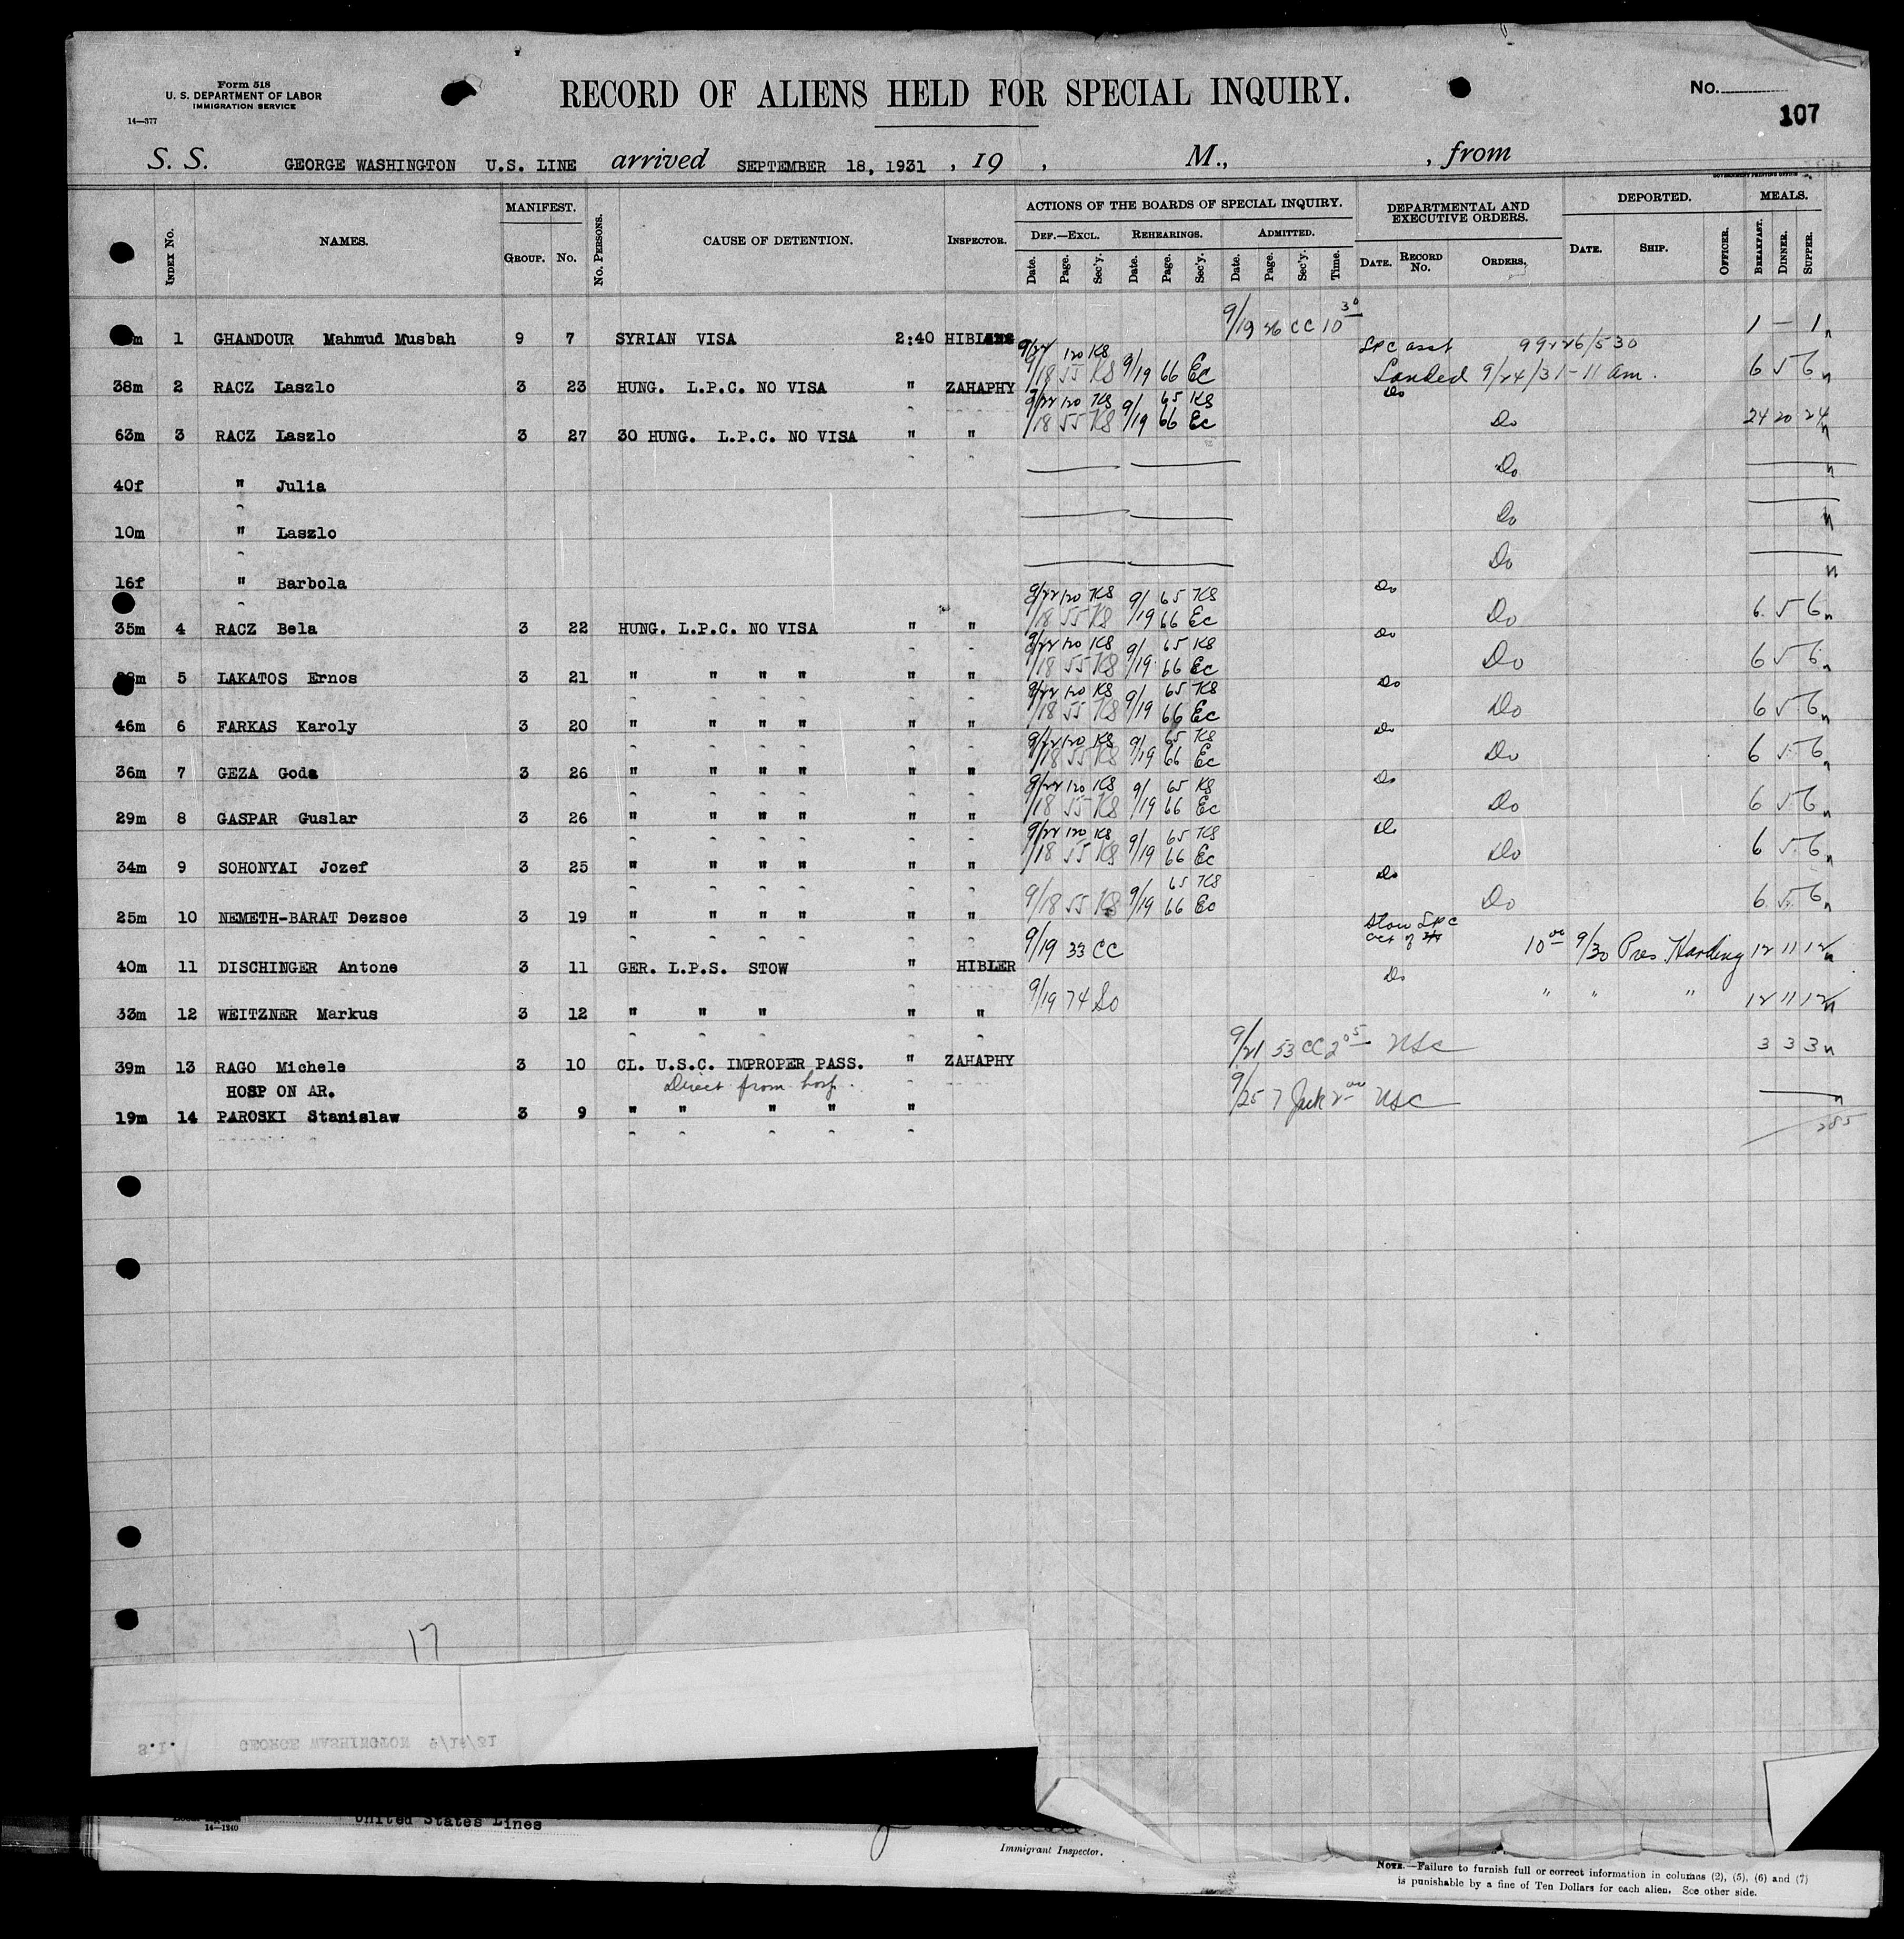 Form 518
U. S. DEPARTMENT OF LABOR
IMMIGRATION SERVICE
14—377
RECORD OF ALIENS HELD FOR SPECIAL INQUIRY.
No.
107
S. S. GEORGE WASHINGTON U.S. LINE arrived SEPTEMBER 18, 1931 , 19 , M., , from
GOVERNMENT PRINTING OFFICE
INDEX No. NAMES. MANIFEST. GROUP. No. No. PERSONS. CAUSE OF DETENTION. INSPECTOR.
ACTIONS OF THE BOARDS OF SPECIAL INQUIRY. DEF.—EXCL. Date. Page. Sec'y. REHEARINGS. Date. Page. Sec'y. ADMITTED. Date. Page. Sec'y. Time.
DEPARTMENTAL AND EXECUTIVE ORDERS. DATE. RECORD No. ORDERS. DEPORTED. DATE. SHIP. OFFICER. MEALS. BREAKFAST. DINNER. SUPPER.
m 1 GHANDOUR Mahmud Musbah 9 7 SYRIAN VISA 2:40 9/19 26 CC 10 30 1 — 1 n
9/22 120 KS 99226/530
38m 2 RACZ Laszlo 3 23 HUNG. L.P.C. NO VISA " ZAHAPHY 9/18 55 KS 9/19 66 Ec Landed 9/24/31 - 11 am. 6 5 6 n
9/22 120 KS 65 KS Do
63m 3 RACZ Laszlo 3 27 30 HUNG. L.P.C. NO VISA " " 9/18 55 KS 9/19 66 Ec Do 24 20 24 n
40f " Julia Do n
10m " Laszlo Do n
16f " Barbola Do n
9/22 120 KS 65 KS Do
35m 4 RACZ Bela 3 22 HUNG. L.P.C. NO VISA " " 9/18 55 KS 9/19 66 Ec Do 6 5 6 n
9/22 120 KS 65 KS Do
m 5 LAKATOS Ernos 3 21 " " " " " " 9/18 55 KS 9/19 66 Ec Do 6 5 6 n
9/22 120 KS 65 KS Do
46m 6 FARKAS Karoly 3 20 " " " " " " 9/18 55 KS 9/19 66 Ec Do 6 5 6 n
9/22 120 KS 65 KS Do
36m 7 GEZA Goda 3 26 " " " " " " 9/18 55 KS 9/19 66 Ec Do 6 5 6 n
9/22 120 KS 65 KS Do
29m 8 GASPAR Guslar 3 26 " " " " " " 9/18 55 KS 9/19 66 Ec Do 6 5 6 n
9/22 120 KS 65 KS Do
34m 9 SOHONYAI Jozef 3 25 " " " " " " 9/18 55 KS 9/19 66 Ec Do 6 5 6 n
65 KS Do
25m 10 NEMETH-BARAT Dezsoe 3 19 " " " " " " 9/18 55 KS 9/19 66 Ec Do 6 5 6 n
40m 11 DISCHINGER Antone 3 11 GER. L.P.S. STOW " HIBLER 9/19 33 CC 10 00 9/30 Pres Harding 12 11 12 n
33m 12 WEITZNER Markus 3 12 " " " " " 9/19 74 Do " " " 12 11 12 n
39m 13 RAGO Michele 3 10 CL. U.S.C. IMPROPER PASS. " ZAHAPHY 9/21 53 CC 2 05 USC 3 3 3 n
HOSP ON AR. Direct from hosp.
19m 14 PAROSKI Stanislaw 3 9 " " " " " 9/25 7 USC n
285
17
S.I. GEORGE WASHINGTON 9/18/31
United States Lines
14—1240
Immigrant Inspector.
NOTE.—Failure to furnish full or correct information in columns (2), (5), (6) and (7)
is punishable by a fine of Ten Dollars for each alien. See other side.